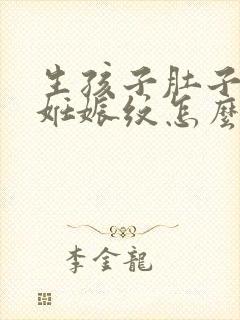 生孩子肚子
妊娠纹怎麽
李金龍